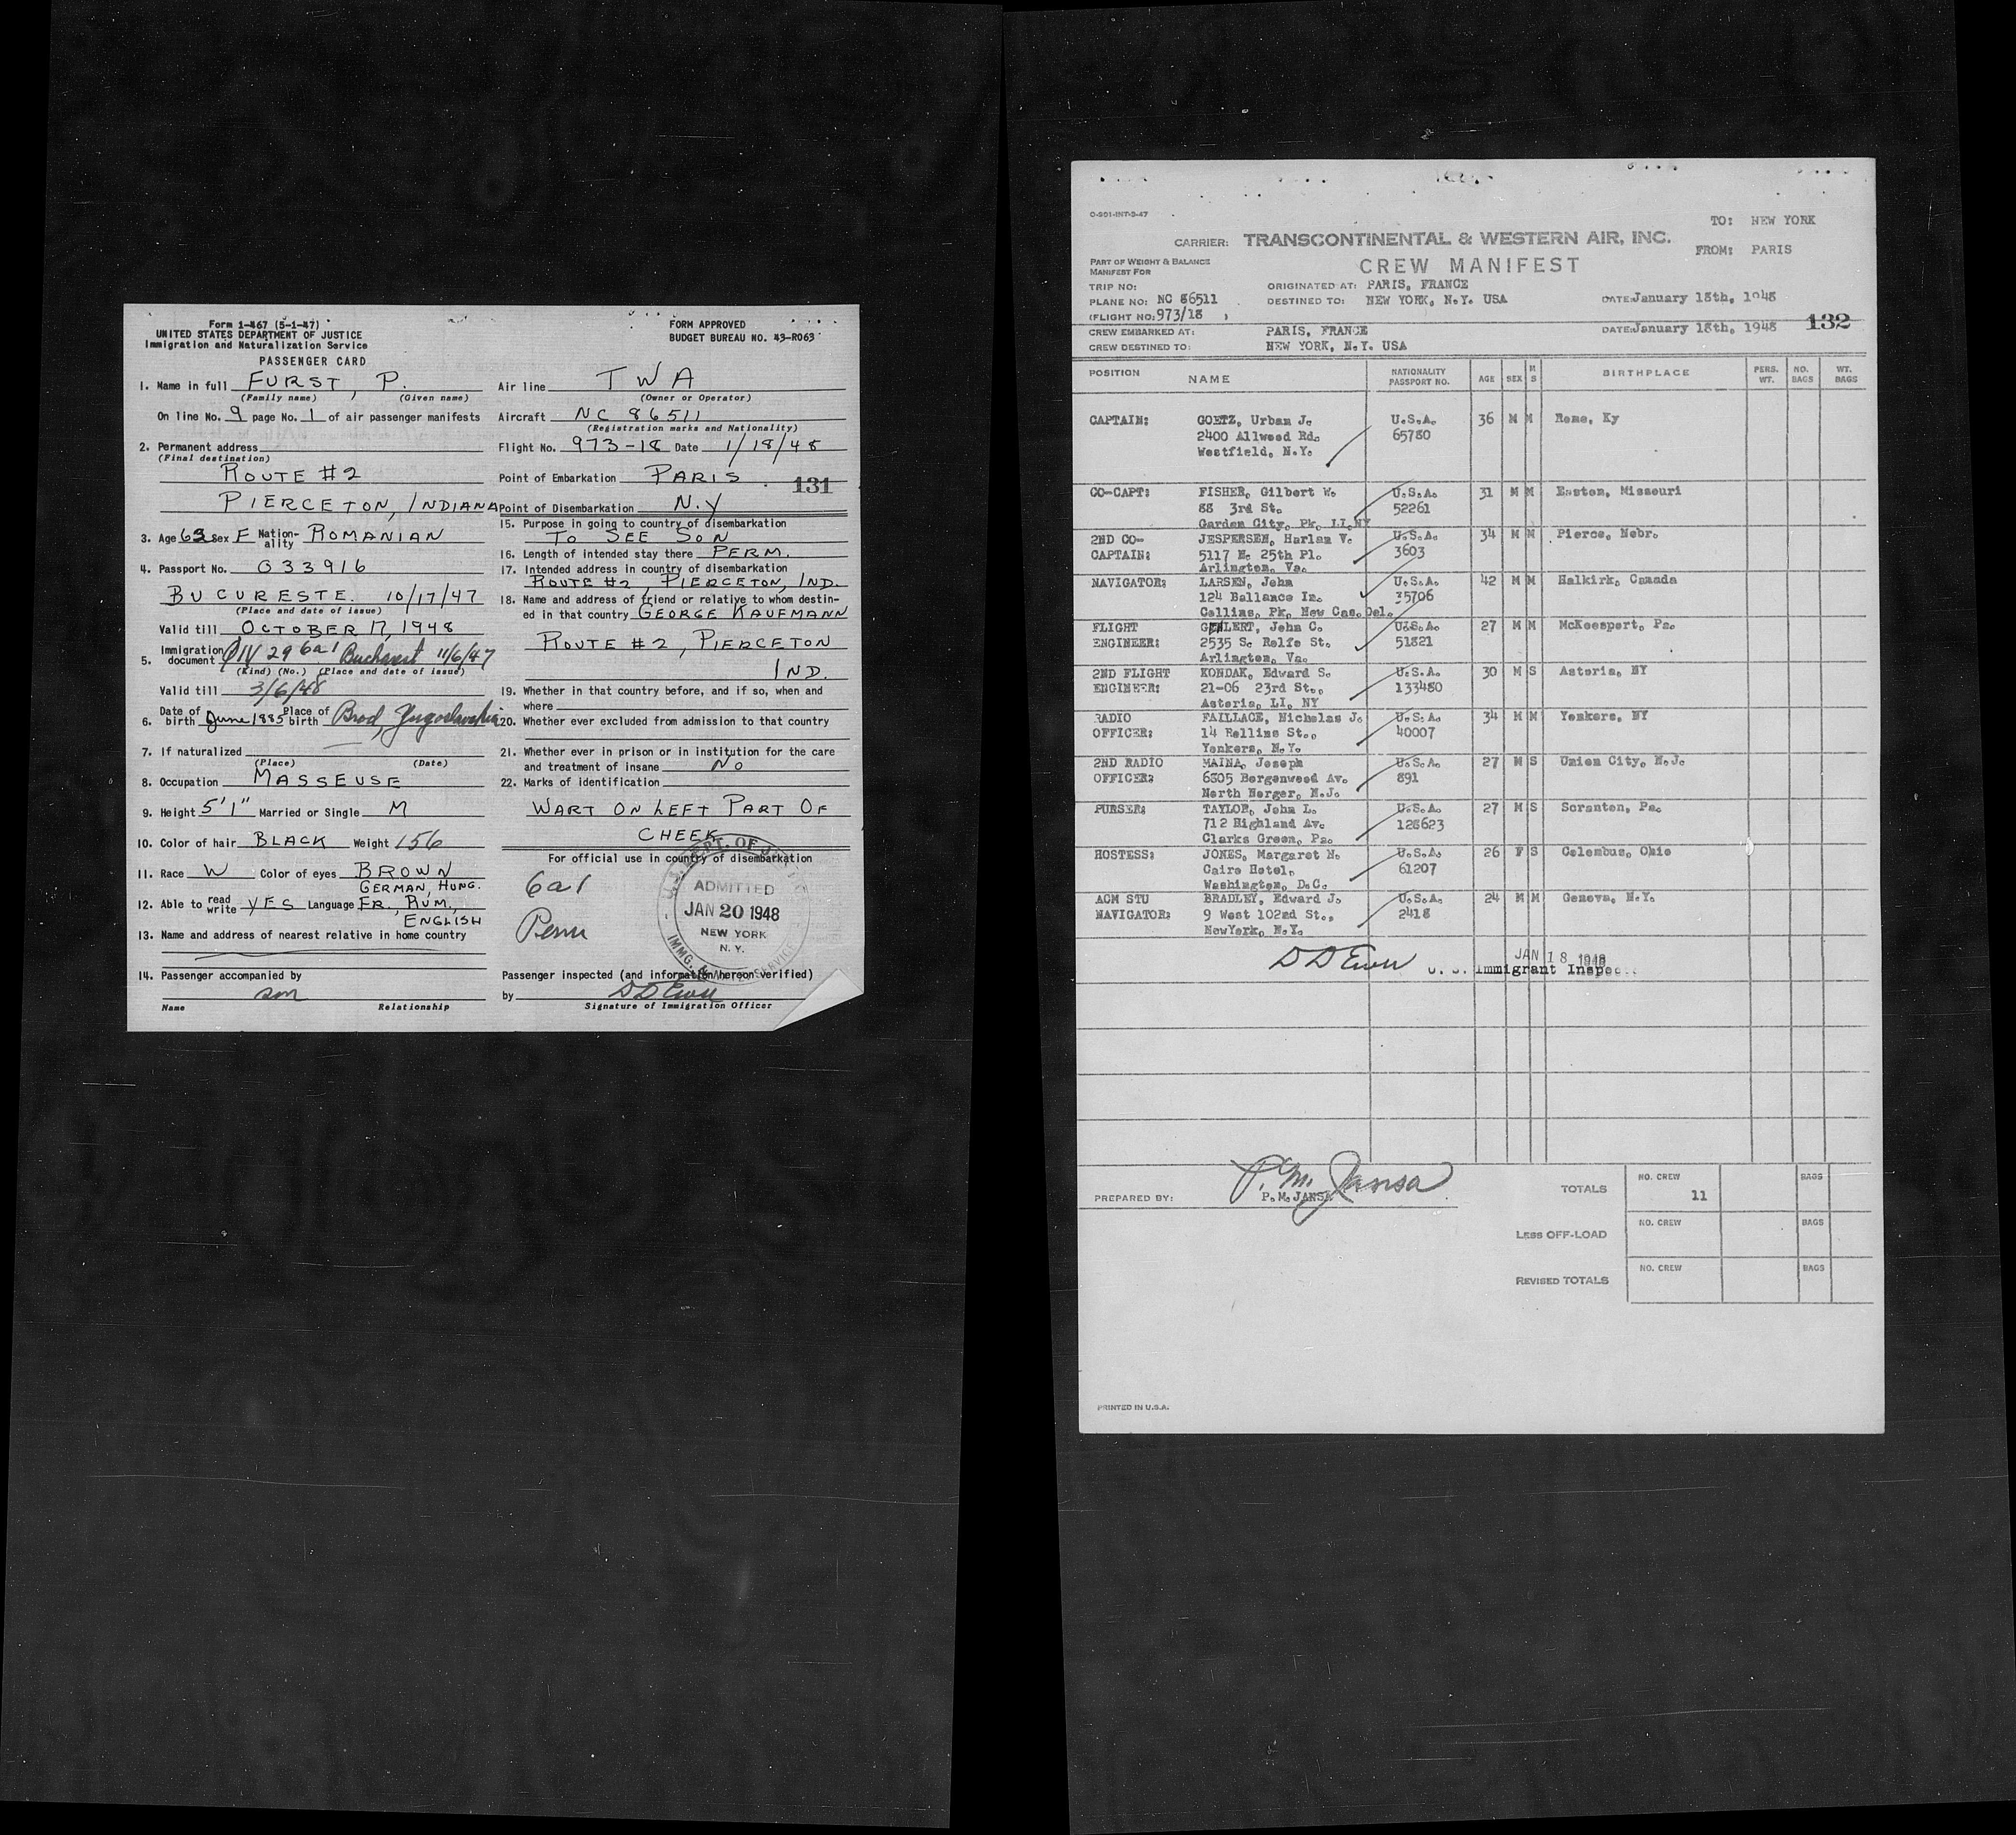 Form 1-467 (5-1-47)
UNITED STATES DEPARTMENT OF JUSTICE
Immigration and Naturalization Service
PASSENGER CARD
FORM APPROVED
BUDGET BUREAU NO. 43-R063
1. Name in full FURST, P.
(Family name) (Given name)
On line No. 9 page No. 1 of air passenger manifests
2. Permanent address
(Final destination)
ROUTE #2
PIERCETON, INDIANA
3. Age 63 Sex F Nationality ROMANIAN
4. Passport No. 033916
BUCURESTE. 10/17/47
(Place and date of issue)
Valid till OCTOBER 17, 1948
5. Immigration document QIV 29 6a1 Bucharest 11/6/47
(Kind) (No.) (Place and date of issue)
Valid till 3/6/48
6. Date of birth June 1885 Place of birth Brod, Yugoslavia
7. If naturalized
(Place) (Date)
8. Occupation MASSEUSE
9. Height 5'1" Married or Single M
10. Color of hair BLACK Weight 156
11. Race W Color of eyes BROWN
12. Able to read write YES Language GERMAN, HUNG.
FR., RUM.,
ENGLISH
13. Name and address of nearest relative in home country
14. Passenger accompanied by
son
Name Relationship
Air line TWA
(Owner or Operator)
Aircraft NC 86511
(Registration marks and Nationality)
Flight No. 973-18 Date 1/18/48
Point of Embarkation PARIS
131
Point of Disembarkation N.Y
15. Purpose in going to country of disembarkation
TO SEE SON
16. Length of intended stay there PERM.
17. Intended address in country of disembarkation
ROUTE #2, PIERCETON, IND.
18. Name and address of friend or relative to whom destin-
ed in that country GEORGE KAUFMANN
ROUTE #2, PIERCETON
IND.
19. Whether in that country before, and if so, when and
where
20. Whether ever excluded from admission to that country
21. Whether ever in prison or in institution for the care
and treatment of insane No
22. Marks of identification
WART ON LEFT PART OF
CHEEK
For official use in country of disembarkation
6a1
Perm
ADMITTED
JAN 20 1948
NEW YORK
N. Y.
Passenger inspected (and information hereon verified)
by D D Ewer
Signature of Immigration Officer
O-901-INT-3-47
TO: NEW YORK
CARRIER: TRANSCONTINENTAL & WESTERN AIR, INC.
FROM: PARIS
PART OF WEIGHT & BALANCE
MANIFEST FOR
CREW MANIFEST
TRIP NO: ORIGINATED AT: PARIS, FRANCE
PLANE NO: NC 86511 DESTINED TO: NEW YORK, N.Y. USA DATE: January 18th, 1948
(FLIGHT NO: 973/18 )
132
CREW EMBARKED AT: PARIS, FRANCE DATE: January 18th, 1948
CREW DESTINED TO: NEW YORK, N.Y. USA
POSITION NAME NATIONALITY PASSPORT NO. AGE SEX M S BIRTHPLACE PERS. WT. NO. BAGS WT. BAGS
CAPTAIN: GOETZ, Urban J. U.S.A. 36 M M Rome, Ky
2400 Allwood Rd. 65780
Westfield, N.Y.
CO-CAPT: FISHER, Gilbert W. U.S.A. 31 M M Easton, Missouri
88 3rd St. 52261
Garden City, Pk, LI,NY
2ND CO- JESPERSEN, Harlan V. U.S.A. 34 M M Pierce, Nebr.
CAPTAIN: 5117 N. 25th Pl. 3603
Arlington, Va.
NAVIGATOR: LARSEN, John U.S.A. 42 M M Halkirk, Canada
124 Ballance In. 35706
Collins, Pk, New Cas. Del.
FLIGHT GEHLERT, John C. U.S.A. 27 M M McKeesport, Pa.
ENGINEER: 2535 S. Rolfe St. 51821
Arlington, Va.
2ND FLIGHT KONDAK, Edward S. U.S.A. 30 M S Astoria, NY
ENGINEER: 21-06 23rd St., 133480
Astoria, LI, NY
RADIO FAILLACE, Nicholas J. U.S.A. 34 M M Yonkers, NY
OFFICER: 14 Rollins St., 40007
Yonkers, N.Y.
2ND RADIO MAINA, Joseph U.S.A. 27 M S Union City, N.J.
OFFICER: 6305 Bergenwood Av. 891
North Berger, N.J.
PURSER: TAYLOR, John L. U.S.A. 27 M S Scranton, Pa.
712 Highland Av. 128623
Clarks Green, Pa.
HOSTESS: JONES, Margaret N. U.S.A. 26 F S Columbus, Ohio
Cairo Hotel, 61207
Washington, D.C.
ACM STU BRADLEY, Edward J. U.S.A. 24 M M Geneva, N.Y.
NAVIGATOR: 9 West 102nd St., 2418
NewYork, N.Y.
D D Ewer JAN 18 1948
U. S. Immigrant Inspec
PREPARED BY: P. M. Jansa
P. M. JANSA
TOTALS NO. CREW 11 BAGS
LESS OFF-LOAD NO. CREW BAGS
REVISED TOTALS NO. CREW BAGS
PRINTED IN U.S.A.